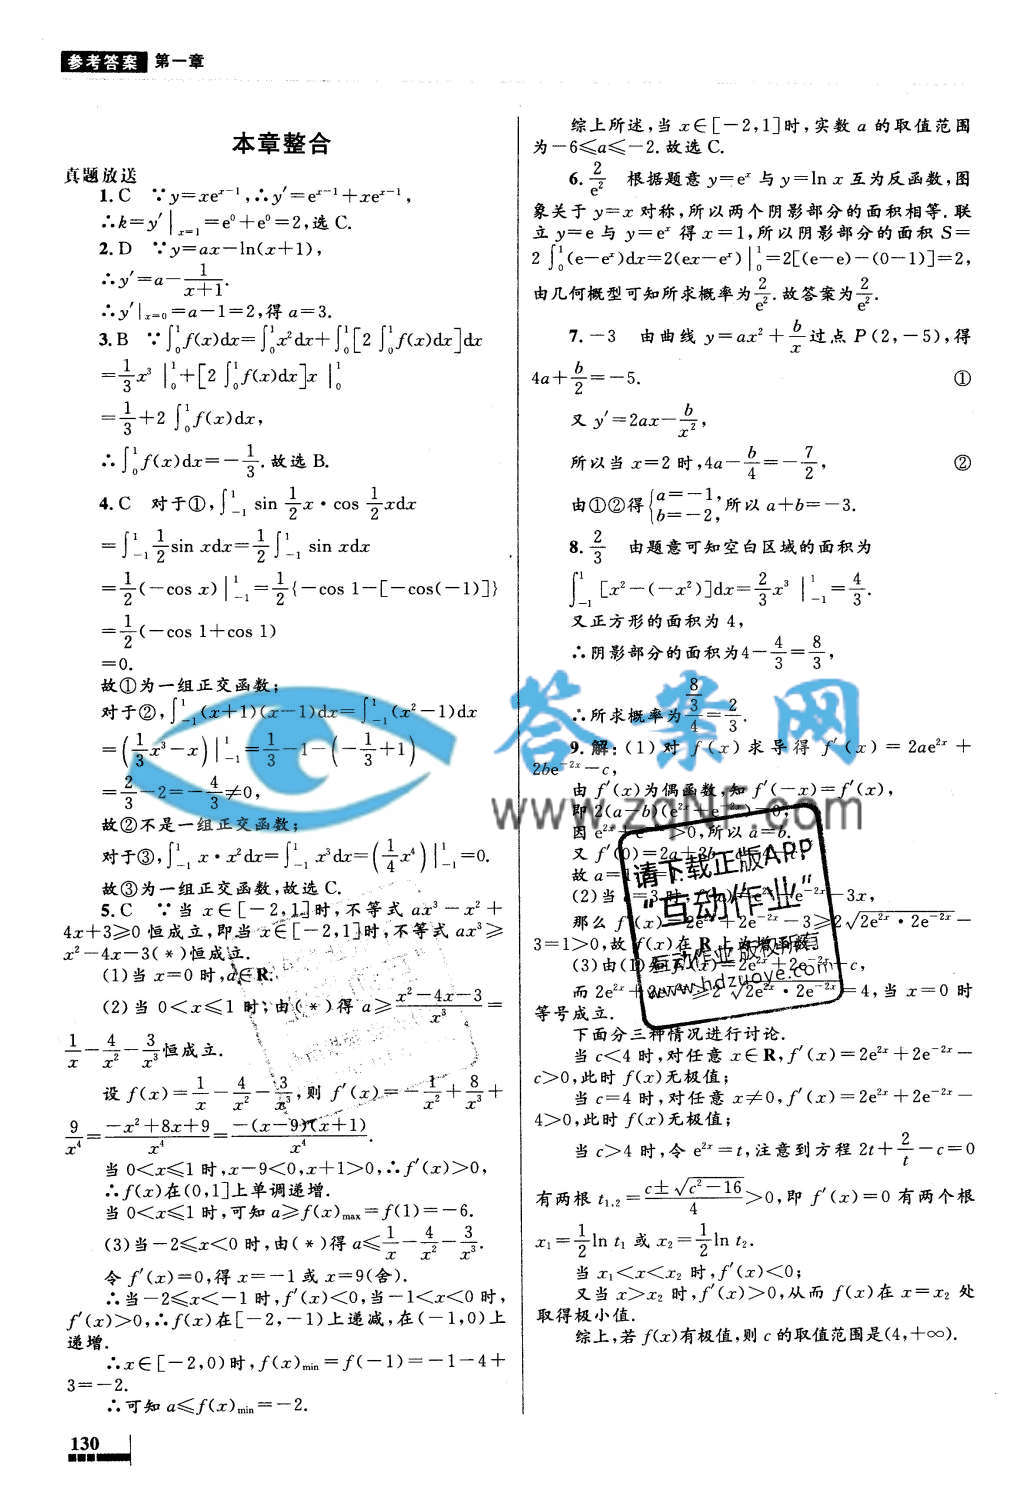 参考答案 第一章
本章整合
真题放送
1. C ∵y=xe^{x-1},∴y′=e^{x-1}+xe^{x-1},
∴k=y′|_{x=1}=e⁰+e⁰=2,选C.
2. D ∵y=ax-ln(x+1),
∴y′=a-1/(x+1).
∴y′|_{x=0}=a-1=2,得a=3.
3. B ∵∫₀¹f(x)dx=∫₀¹x²dx+∫₀¹[2∫₀¹f(x)dx]dx
=1/3 x³|₀¹+[2∫₀¹f(x)dx]x|₀¹
=1/3+2∫₀¹f(x)dx,
∴∫₀¹f(x)dx=-1/3.故选B.
4. C 对于①,∫₋₁¹ sin 1/2 x·cos 1/2 xdx
=∫₋₁¹ 1/2 sin xdx=1/2∫₋₁¹ sin xdx
=1/2(-cos x)|₋₁¹=1/2{-cos 1-[-cos(-1)]}
=1/2(-cos 1+cos 1)
=0.
故①为一组正交函数;
对于②,∫₋₁¹(x+1)(x-1)dx=∫₋₁¹(x²-1)dx
=(1/3 x³-x)|₋₁¹=1/3-1-(-1/3+1)
=2/3-2=-4/3≠0,
故②不是一组正交函数;
对于③,∫₋₁¹x·x²dx=∫₋₁¹x³dx=(1/4 x⁴)|₋₁¹=0.
故③为一组正交函数,故选C.
5. C ∵当x∈[-2,1]时,不等式ax³-x²+
4x+3≥0恒成立,即当x∈[-2,1]时,不等式ax³≥
x²-4x-3(*)恒成立.
(1)当x=0时,a∈R.
(2)当0<x≤1时,由(*)得a≥(x²-4x-3)/x³=
1/x-4/x²-3/x³恒成立.
设f(x)=1/x-4/x²-3/x³,则f′(x)=-1/x²+8/x³+
9/x⁴=(-x²+8x+9)/x⁴=-(x-9)(x+1)/x⁴.
当0<x≤1时,x-9<0,x+1>0,∴f′(x)>0,
∴f(x)在(0,1]上单调递增.
当0<x≤1时,可知a≥f(x)max=f(1)=-6.
(3)当-2≤x<0时,由(*)得a≤1/x-4/x²-3/x³.
令f′(x)=0,得x=-1或x=9(舍).
∴当-2≤x<-1时,f′(x)<0,当-1<x<0时,
f′(x)>0,∴f(x)在[-2,-1)上递减,在(-1,0)上
递增.
∴x∈[-2,0)时,f(x)min=f(-1)=-1-4+
3=-2.
∴可知a≤f(x)min=-2.
综上所述,当x∈[-2,1]时,实数a的取值范围
为-6≤a≤-2.故选C.
6. 2/e² 根据题意y=eˣ与y=ln x互为反函数,图
象关于y=x对称,所以两个阴影部分的面积相等.联
立y=e与y=eˣ得x=1,所以阴影部分的面积S=
2∫₀¹(e-eˣ)dx=2(ex-eˣ)|₀¹=2[(e-e)-(0-1)]=2,
由几何概型可知所求概率为2/e².故答案为2/e².
7. -3 由曲线y=ax²+b/x过点P(2,-5),得
4a+b/2=-5. ①
又y′=2ax-b/x²,
所以当x=2时,4a-b/4=-7/2, ②
由①②得{a=-1, b=-2,所以a+b=-3.
8. 2/3 由题意可知空白区域的面积为
∫₋₁¹[x²-(-x²)]dx=2/3 x³|₋₁¹=4/3.
又正方形的面积为4,
∴阴影部分的面积为4-4/3=8/3,
∴所求概率为(8/3)/4=2/3.
9. 解:(1)对f(x)求导得f′(x)=2ae²ˣ+
2be⁻²ˣ-c,
由f′(x)为偶函数,知f′(-x)=f′(x),
即2(a-b)(e²ˣ+e⁻²ˣ)=0,
因e²ˣ+e⁻²ˣ>0,所以a=b.
又f′(0)=2a+2b-c=4-c,
故a=1,b=1.
(2)当c=3时,f(x)=e²ˣ-e⁻²ˣ-3x,
那么f′(x)=2e²ˣ+2e⁻²ˣ-3≥2√(2e²ˣ·2e⁻²ˣ)-
3=1>0,故f(x)在R上为增函数.
(3)由(1)知f′(x)=2e²ˣ+2e⁻²ˣ-c,
而2e²ˣ+2e⁻²ˣ≥2√(2e²ˣ·2e⁻²ˣ)=4,当x=0时
等号成立.
下面分三种情况进行讨论.
当c<4时,对任意x∈R,f′(x)=2e²ˣ+2e⁻²ˣ-
c>0,此时f(x)无极值;
当c=4时,对任意x≠0,f′(x)=2e²ˣ+2e⁻²ˣ-
4>0,此时f(x)无极值;
当c>4时,令e²ˣ=t,注意到方程2t+2/t-c=0
有两根t₁,₂=(c±√(c²-16))/4>0,即f′(x)=0有两个根
x₁=1/2 ln t₁或x₂=1/2 ln t₂.
当x₁<x<x₂时,f′(x)<0;
又当x>x₂时,f′(x)>0,从而f(x)在x=x₂处
取得极小值.
综上,若f(x)有极值,则c的取值范围是(4,+∞).
答案网
www.zqnf.com
请下载正版APP
“互动作业”
互动作业 版权所有
www.hdzuoye.com
130